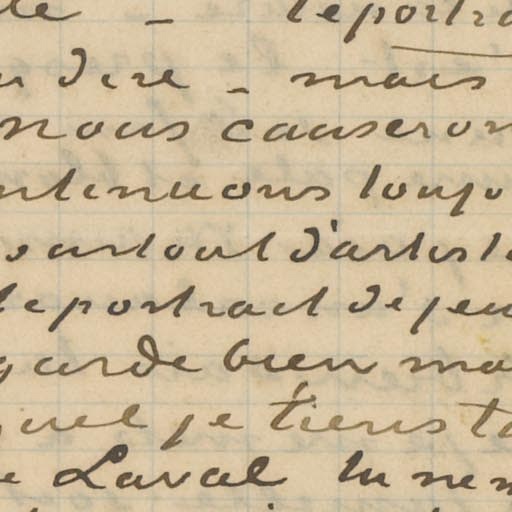 le – leportra
dire – mais
nous causeron
ntinuons toujo
surtout d'artiste
leportrait de jeu
garde bien mo
quel je tiens ta
e Laval tu ne